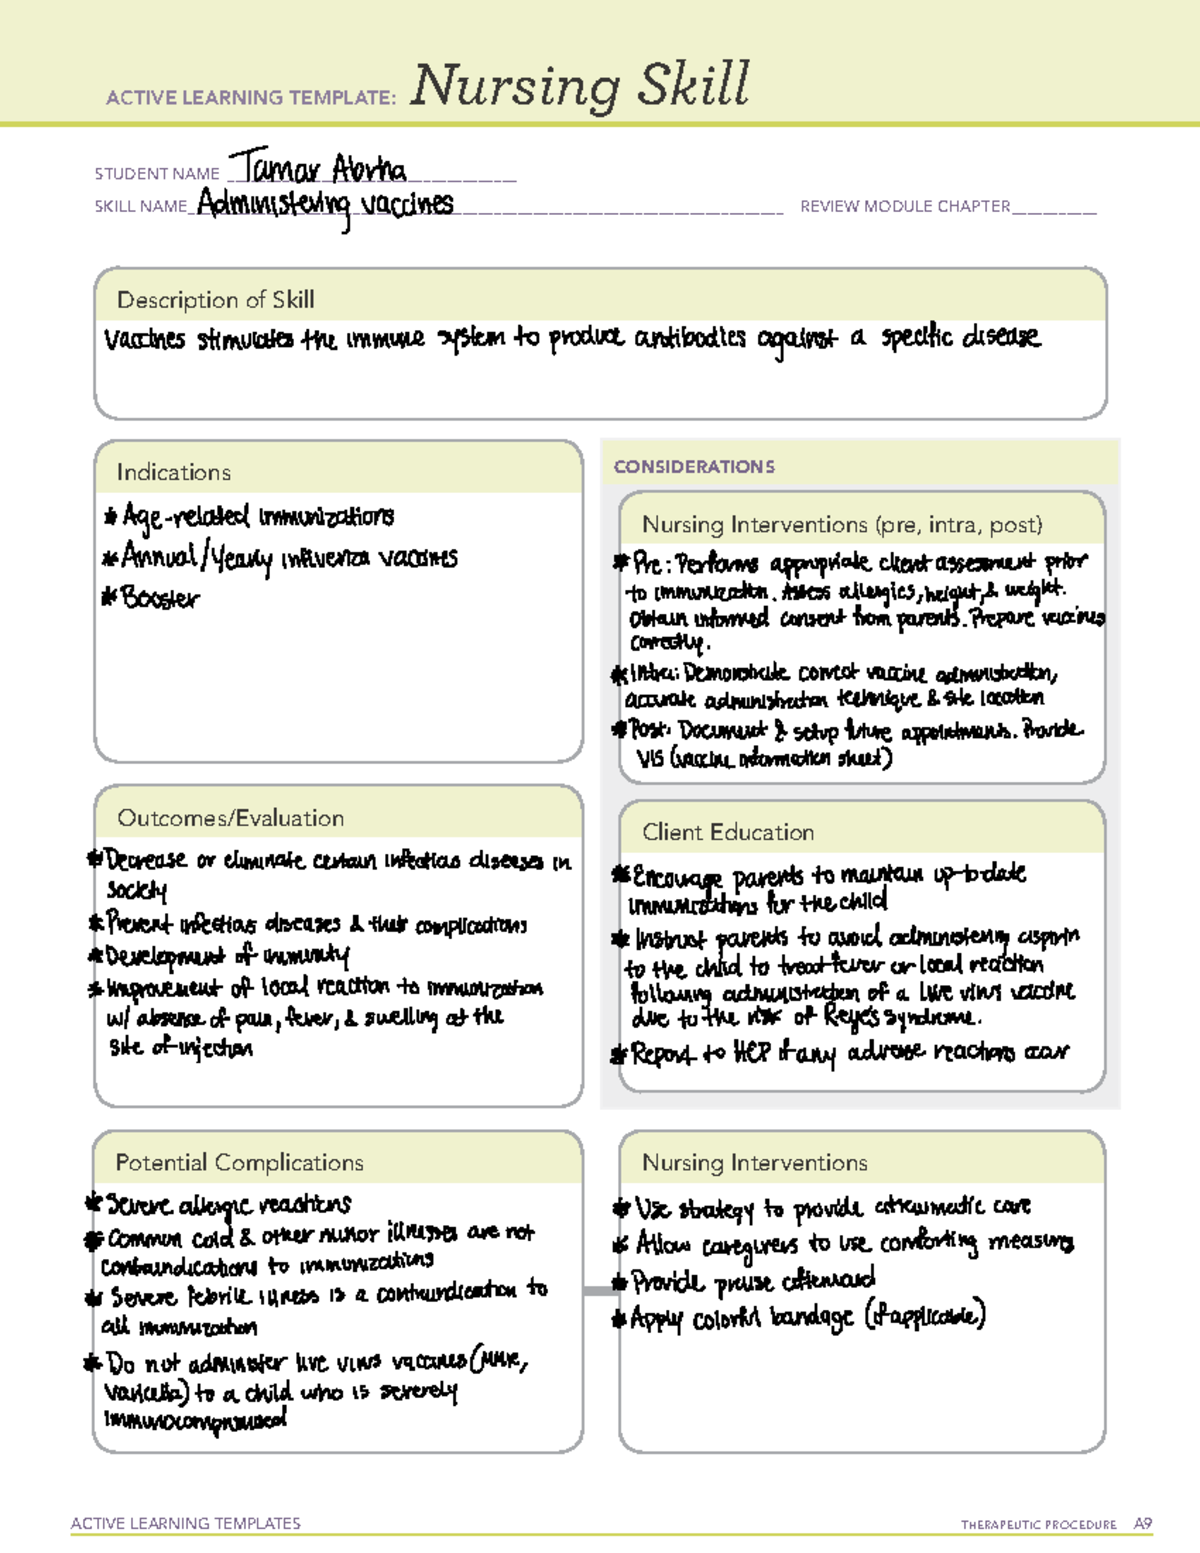 ACTIVE LEARNING TEMPLATE: Nursing Skill
STUDENT NAME Tamar Abrha
SKILL NAME Administering vaccines REVIEW MODULE CHAPTER
Description of Skill
Vaccines stimulates the immune system to produce antibodies against a specific disease
Indications
* Age-related immunizations
* Annual/Yearly influenza vaccines
* Booster
CONSIDERATIONS
Nursing Interventions (pre, intra, post)
* Pre: Performs appropriate client assessment prior
to immunization. Assess allergies, height, & weight.
Obtain informed consent from parents. Prepare vaccines
correctly.
* Intra: Demonstrate correct vaccine administration,
accurate administration technique & site location
* Post: Document & setup future appointments. Provide
VIS (vaccine information sheet)
Outcomes/Evaluation
* Decrease or eliminate certain infectious diseases in
society
* Prevent infectious diseases & their complications
* Development of immunity
* Improvement of local reaction to immunization
w/ absence of pain, fever, & swelling at the
site of injection
Client Education
* Encourage parents to maintain up-to-date
immunizations for the child
* Instruct parents to avoid administering aspirin
to the child to treat fever or local reaction
following administration of a live virus vaccine
due to the risk of Reye's syndrome.
* Report to HCP if any adverse reactions occur
Potential Complications
* Severe allergic reactions
* Common cold & other minor illnesses are not
contraindications to immunizations
* Severe febrile illness is a contraindication to
all immunization
* Do not administer live virus vaccines (MMR,
varicella) to a child who is severely
immunocompromised
Nursing Interventions
* Use strategy to provide atraumatic care
* Allow caregivers to use comforting measures
* Provide praise afterward
* Apply colorful bandage (if applicable)
ACTIVE LEARNING TEMPLATES
THERAPEUTIC PROCEDURE A9